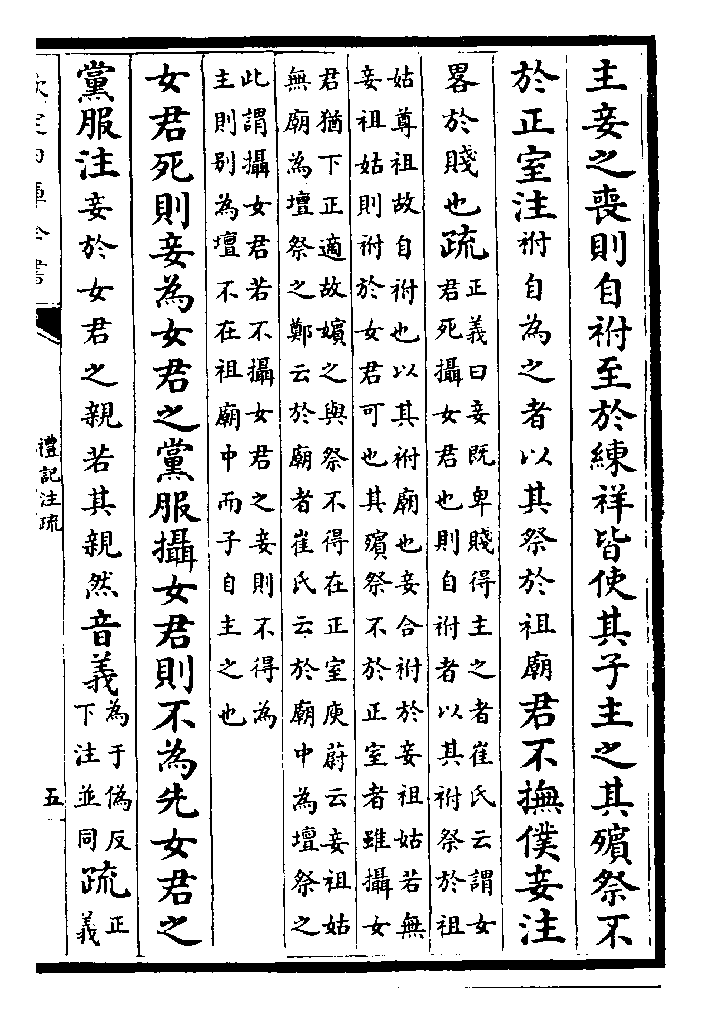 主妾之喪則自祔至於練祥皆使其子主之其殯祭不
於正室注祔自為之者以其祭於祖廟君不撫僕妾注
畧於賤也疏正義曰妾既卑賤得主之者崔氏云謂女
君死攝女君也則自祔者以其祔祭於祖
姑尊祖故自祔也以其祔廟也妾合祔於妾祖姑若無
妾祖姑則祔於女君可也其殯祭不於正室者雖攝女
君猶下正適故嬪之與祭不得在正室庾蔚云妾祖姑
無廟為壇祭之鄭云於廟者崔氏云於廟中為壇祭之
此謂攝女君若不攝女君之妾則不得為
主則别為壇不在祖廟中而子自主之也
女君死則妾為女君之黨服攝女君則不為先女君之
黨服注妾於女君之親若其親然音義為于偽反下注並同疏正義
欽定四庫全書
禮記注疏
五